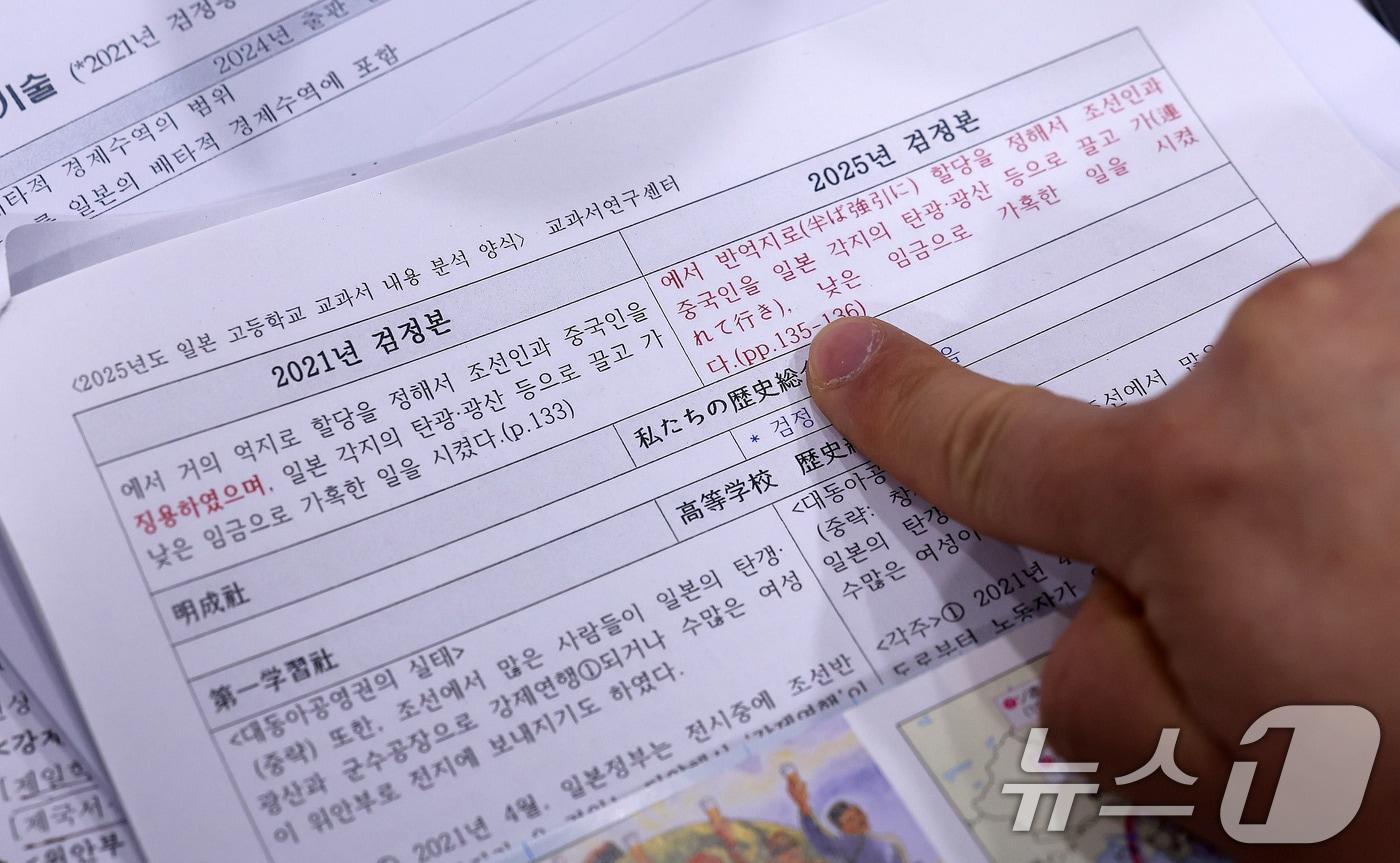 기술 (*2021년 검정
2024년 출판
경제수역의 범위
일본의 배타적 경제수역에 포함
<2025년도 일본 고등학교 교과서 내용 분석 양식> 교과서연구센터
2021년 검정본
2025년 검정본
에서 거의 억지로 할당을 정해서 조선인과 중국인을
징용하였으며, 일본 각지의 탄광·광산 등으로 끌고 가
낮은 임금으로 가혹한 일을 시켰다.(p.133)
에서 반억지로(半ば強引に) 할당을 정해서 조선인과
중국인을 일본 각지의 탄광·광산 등으로 끌고 가(連
れて行き), 낮은 임금으로 가혹한 일을 시켰
다.(pp.135-136)
明成社
私たちの歴史総
* 검정
第一学習社
高等学校 歴史
<대동아공영권의 실태>
(중략) 또한, 조선에서 많은 사람들이 일본의 탄갱·
광산과 군수공장으로 강제연행①되거나 수많은 여성
이 위안부로 전지에 보내지기도 하였다.
① 2021년 4월, 일본정부는 전시중에 조선반
<대동아공
(중략: 창
일본의 탄갱
수많은 여성이
<각주>① 2021년 4
도로부터 노동자가
뉴스1